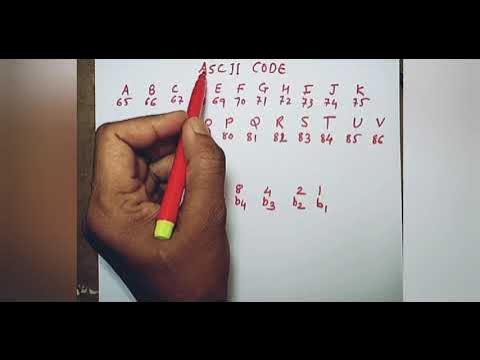 ASCII CODE
A B C E F G H I J K
65 66 67 69 70 71 72 73 74 75
P Q R S T U V
80 81 82 83 84 85 86
8 4 2 1
b4 b3 b2 b1